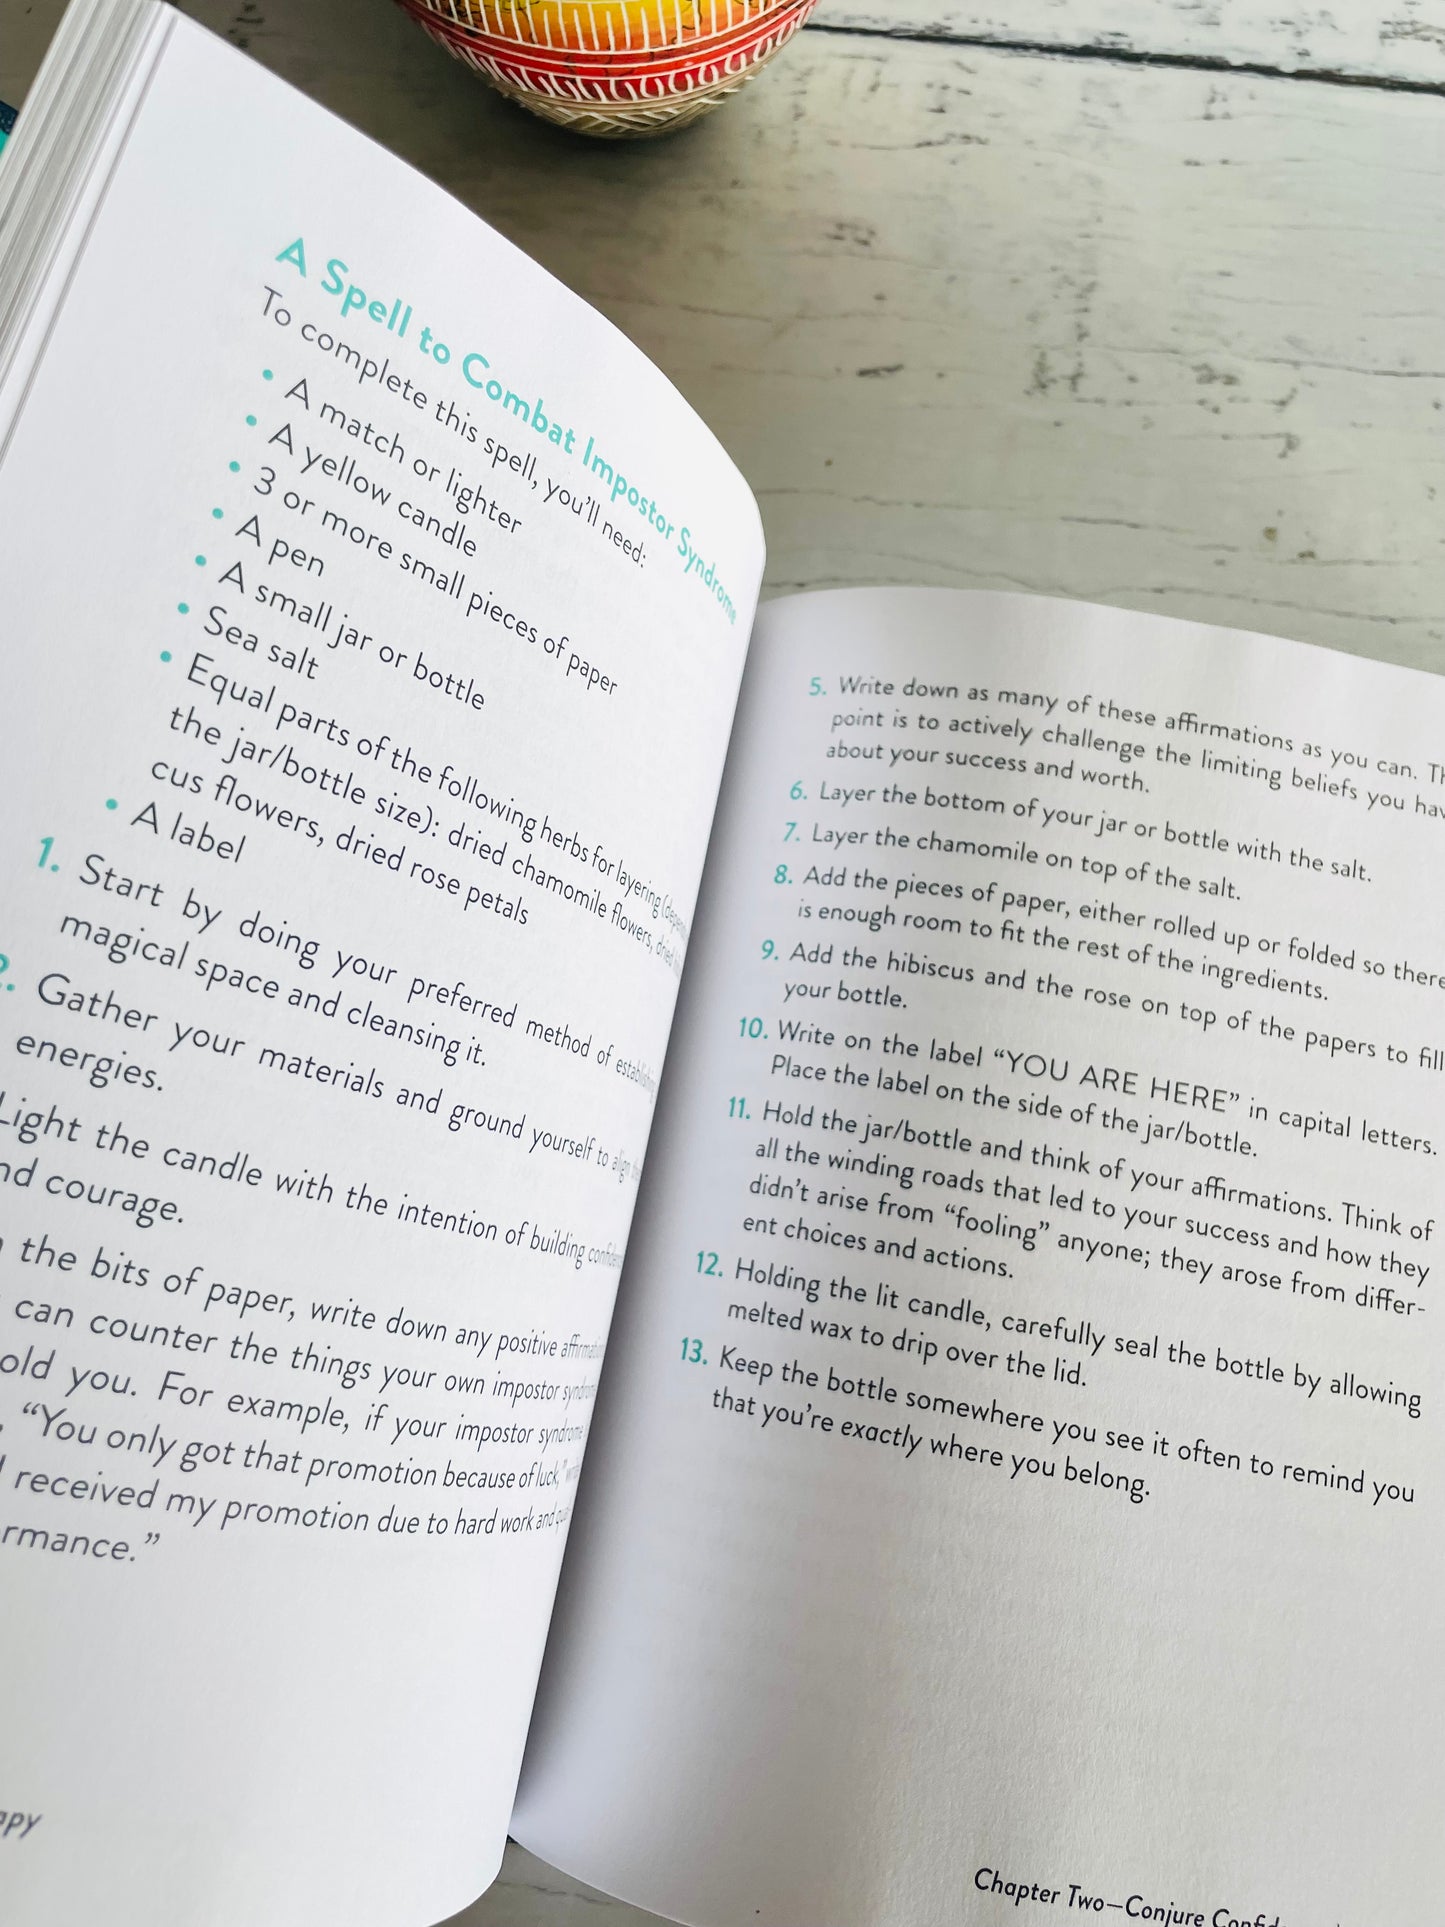 A Spell to Combat Impostor Syndrome
To complete this spell, you'll need:
• A match or lighter
• A yellow candle
• 3 or more small pieces of paper
• A pen
• A small jar or bottle
• Sea salt
• Equal parts of the following herbs for layering
the jar/bottle size): dried chamomile flowers, dried
cus flowers, dried rose petals
• A label
1. Start by doing your preferred method of establishing
magical space and cleansing it.
2. Gather your materials and ground yourself to align
energies.
Light the candle with the intention of building
nd courage.
the bits of paper, write down any positive
can counter the things your own impostor
old you. For example, if your impostor syndrome
"You only got that promotion because of luck,"
received my promotion due to hard work and
rmance."
apy
5. Write down as many of these affirmations as you can. Th
point is to actively challenge the limiting beliefs you hav
about your success and worth.
6. Layer the bottom of your jar or bottle with the salt.
7. Layer the chamomile on top of the salt.
8. Add the pieces of paper, either rolled up or folded so there
is enough room to fit the rest of the ingredients.
9. Add the hibiscus and the rose on top of the papers to fill
your bottle.
10. Write on the label "YOU ARE HERE" in capital letters.
Place the label on the side of the jar/bottle.
11. Hold the jar/bottle and think of your affirmations. Think of
all the winding roads that led to your success and how they
didn't arise from "fooling" anyone; they arose from differ-
ent choices and actions.
12. Holding the lit candle, carefully seal the bottle by allowing
melted wax to drip over the lid.
13. Keep the bottle somewhere you see it often to remind you
that you're exactly where you belong.
Chapter Two—Conjure